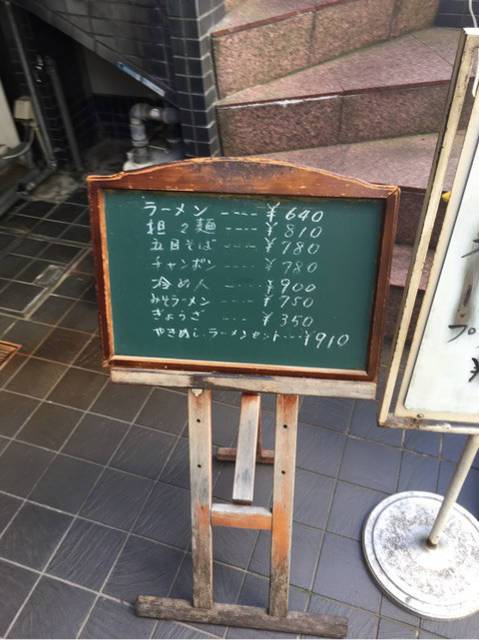 ラーメン ---- ¥640
担々麺 ---- ¥810
五目そば ---- ¥780
チャンポン ---- ¥780
冷めん ---- ¥900
みそラーメン ---- ¥750
ぎょうざ --- ¥350
やきめし、ラーメンセット --- ¥910
プ
¥